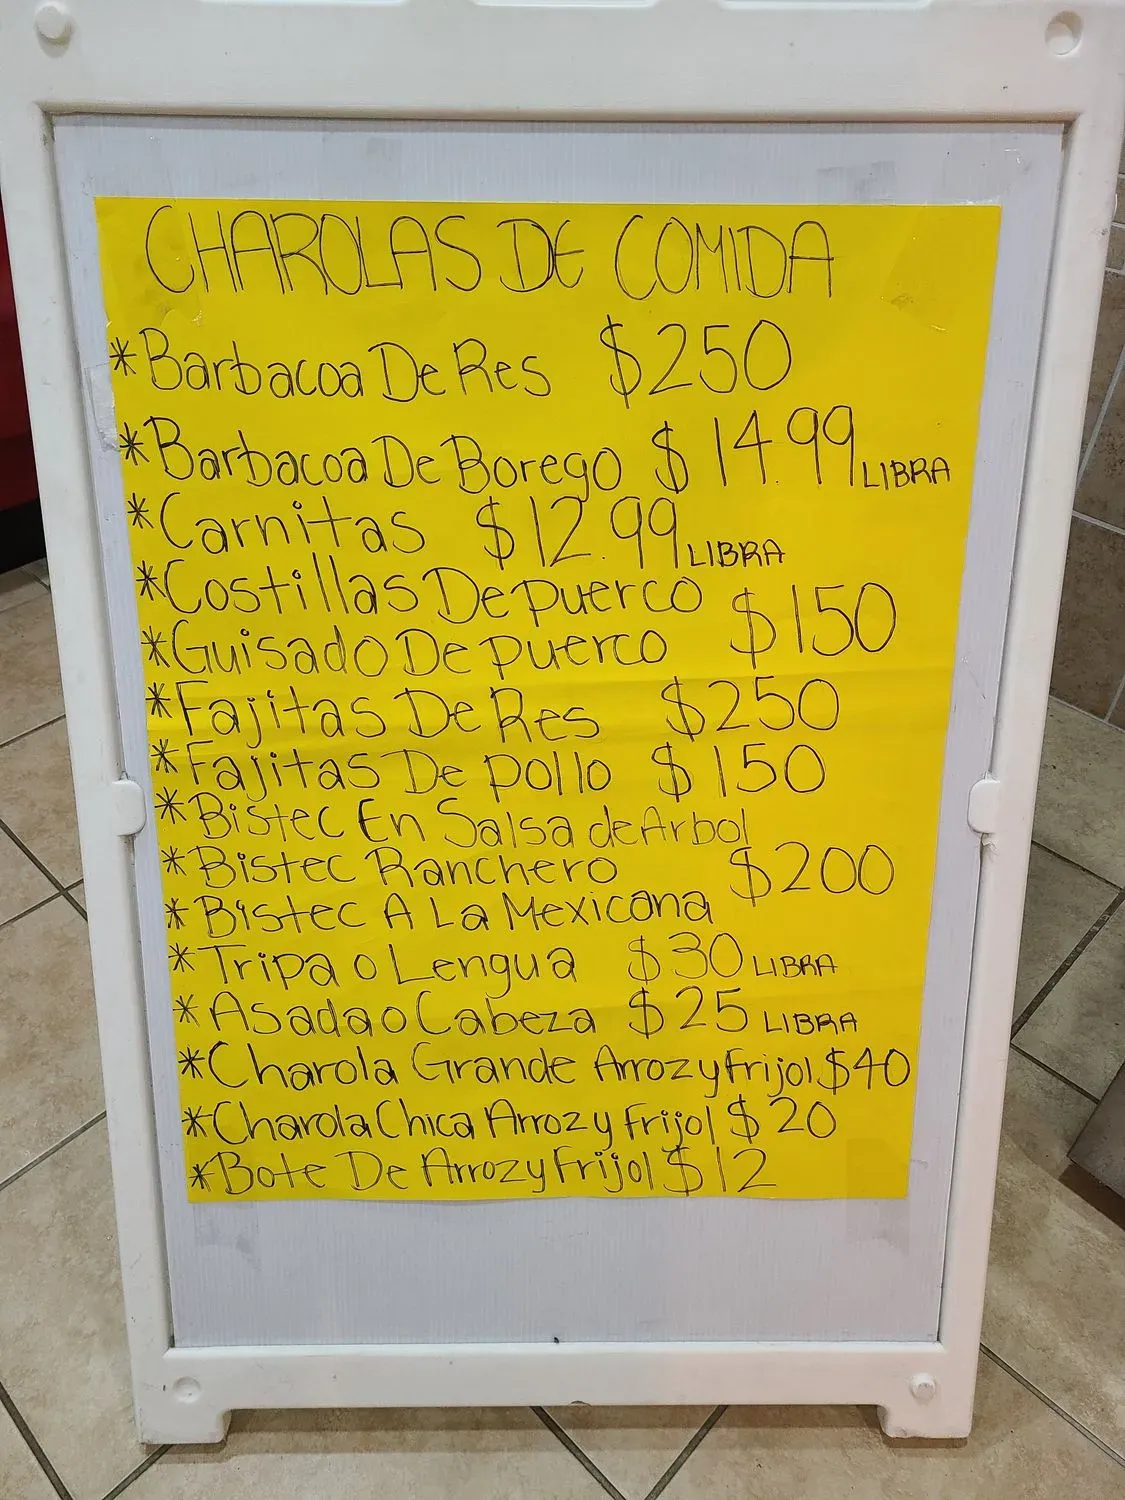 CHAROLAS DE COMIDA
*Barbacoa De Res $250
*Barbacoa De Borego $14.99 LIBRA
*Carnitas $12.99 LIBRA
*Costillas De puerco
*Guisado De puerco $150
*Fajitas De Res $250
*Fajitas De pollo $150
*Bistec En Salsa de Arbol
*Bistec Ranchero $200
*Bistec A La Mexicana
*Tripa o Lengua $30 LIBRA
*Asada o Cabeza $25 LIBRA
*Charola Grande Arroz y frijol $40
*Charola Chica Arroz y frijol $20
*Bote De Arroz y Frijol $12